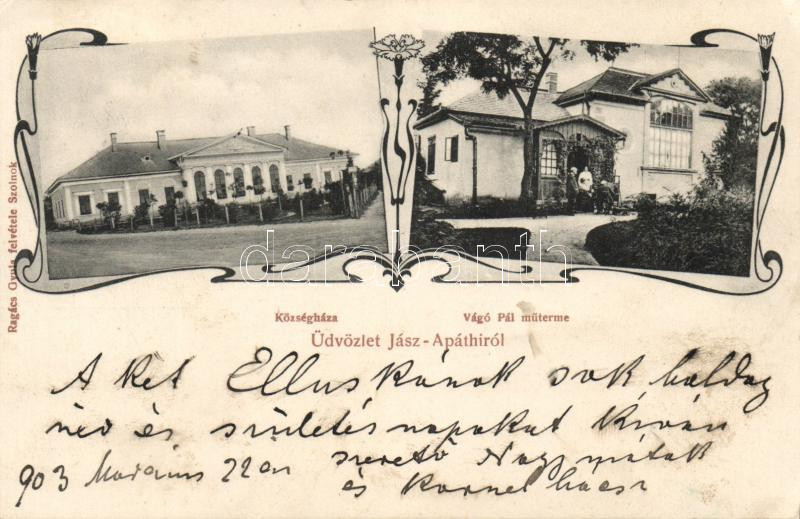 Ragács Gyula felvétele Szolnok
darabanth
Községháza
Vágó Pál műterme
Üdvözlet Jász-Apáthiról
A két Elluskának sok boldog
név és születés napokat kíván
903 Március 22én szerető Nagymáták
és Kornel bácsi